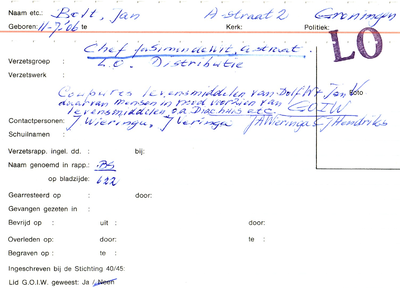 Naam etc.: Belt, Jan A-straat 2 Groningen
Geboren: 11-7-'06 te Kerk: Politiek:
LO
Chef A-straat.
Verzetsgroep : L.O. Distributie
Verzetswerk :
Coupures levensmiddelen van Foto
van mensen in nood voorzien van GOIW
levensmiddelen o.a. etc.
Contactpersonen: J Wieringa, J A Wieringa & J Hendriks
Schuilnaam :
Verzetsrapp. ingel. dd. : bij:
Naam genoemd in rapp.: BS
op bladzijde: 622
Gearresteerd op : door:
Gevangen gezeten in :
Bevrijd op : uit : door:
Overleden op: door: te :
Begraven op : te :
Ingeschreven bij de Stichting 40/45:
Lid G.O.I.W. geweest: Ja / Neen